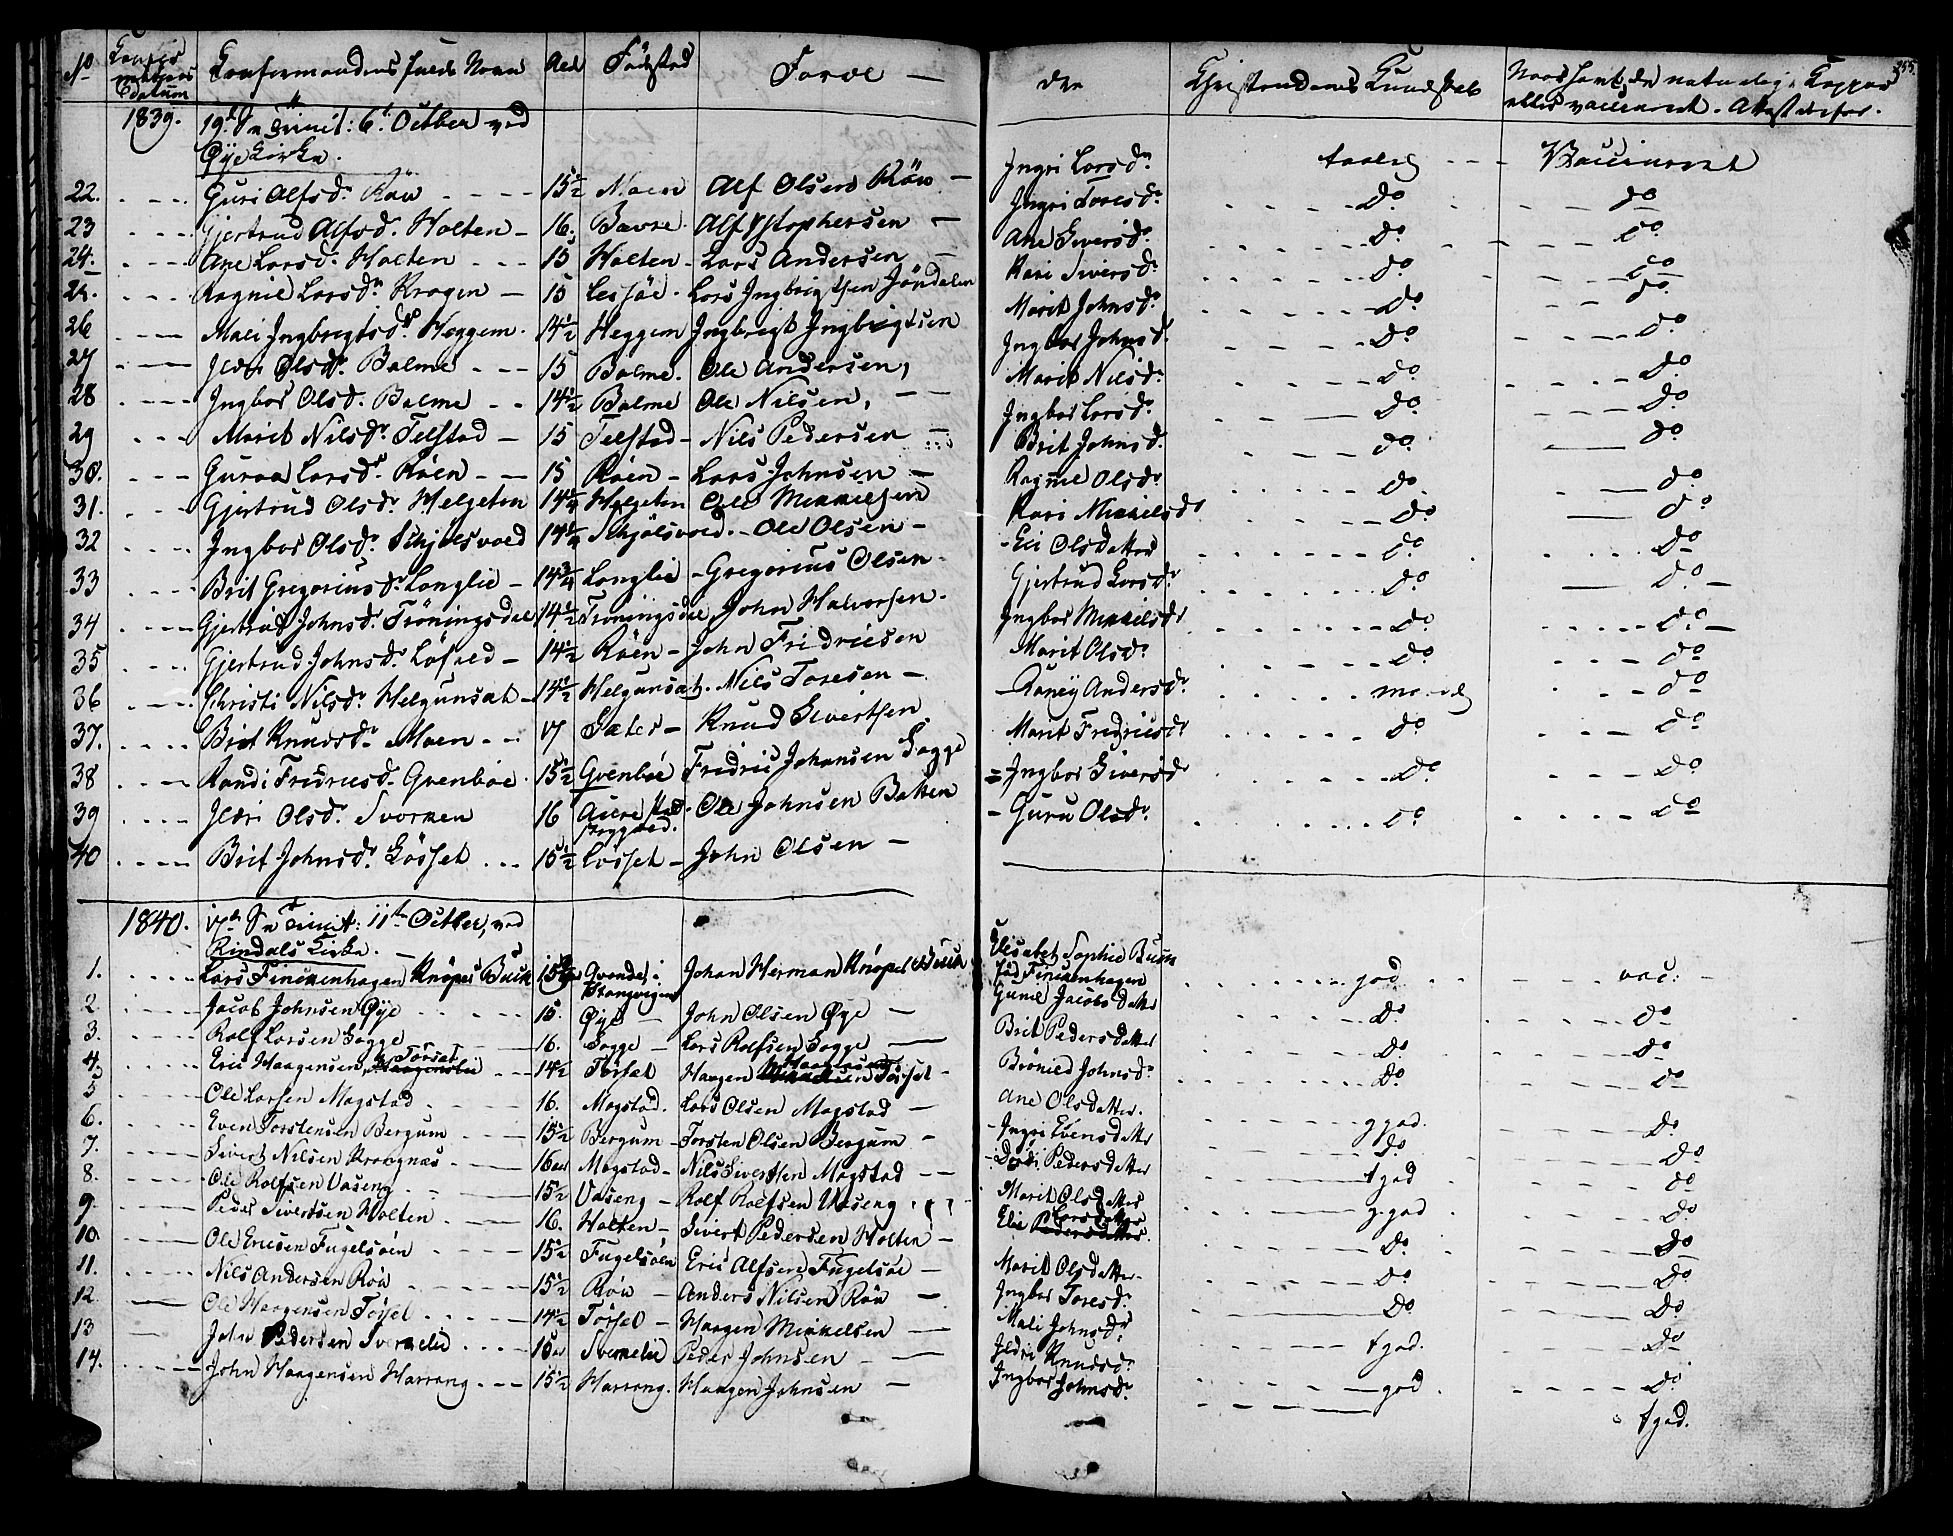 No Confirmations Datum Confirmandens fulde Navn Ald Födested Forældre
den Christendoms Kundskab Naar havt de naturlige Kopper 255.
eller vaccineret. Attest derfor.
1839. 19de Sn Trinit: 6te Octber ved
Øye Kirke.
22. Guri Alfsdr. Röv 15½ Moen Alf Olsen Röv Ingri Larsdr. taalelig Vaccineret
23 Gjertrud Alfsdr. Holten 16. Bævre. Alf Christophersen Ingri Toresdr. do do
24. Ane Larsdr. Holten 15 Holten Lars Andersen Ane Siversdr. do do
25. Ragnil Larsdr. Kragen 15 Lars Ingbrigtsen Kari Siversdr. do do
26 Mali Ingbrigtsdr. Heggem. 14½ Heggem Ingbrigt Ingbrigtsen Marit Johnsdr. do do
27 Olsdr. Bolme 15 Bolme. Ole Andersen, Ingbor Johnsd. do do
28 Ingbor Olsd. Bolme 14½ Bolme Ole Nilsen, Marit Nilsdr. do do
29 Marit Nilsdr. Telstad 15 Telstad Nils Pedersen Ingbor Larsdr. do do
30. Guroe Larsdr. Röen 15 Röen Lars Johnsen Brit Johnsd. do do
31. Gjertrud Olsdr. Helgeten 14¼ Helgeten Ole Mikkelsen Ragnil Olsdr. do do
32 Ingbor Olsdr. Schjölsvold 14¼ Schjölsvold. Ole Olsen Kari Mikkelsdr. do do
33 Brit Gregoriusdr. Langlie 14¾ Langlie Gregorius Olsen Eli Olsdatter do do
34 Gjertrud Johnsd. Tröningsdal 14½ Tröningsdal John Halvorsen Gjertrud Larsdr. do do
35 Gjertrud Johnsdr. Löfald 14½ Röen John Fridricsen Ingbor Mikkelsdr do do
36 Christi Nilsdr. Helgunsæt 14½ Helgunsæt. Nils Toresen Marit Olsdr. do do
37. Brit Knudsdr. Moen 17 Sæter Knud Sivertsen Raney Andersdr. maadelig do
38 Randi Fredricsd. Grenböe 15½ Grenböe Fredric Johansen Sogge Marit Fredricsdr do do
39 Olsdr. Svorken 16 Aure Ole Johnsen Bakken Ingbor Siversdr do do
40 Brit Johnsdr. Lösset 15½ Lösset John Olsen Guru Olsdr. do do
1840. 17de Sn Trinit: 11te Octber, ved
Rindals Kirke.
1. Lars Finckenhagen Knöpel Buck 15 Johan Herman Knöpel Buck Elsabet Sophie Buck
föd Finckenhagen god vac:
2 Jacob Johnsen Øye 15. Øye John Olsen Øye Gunil Jacobsdatter do do
3. Rolf Larsen Sogge 16. Sogge Lars Rolfsen Sogge Brit Pedersdatter do do
4. Eric Haagensen Törset 14½ Törset Haagen Törset Brönild Johnsdr. do do
5 Ole Larsen Mogstad 16. Mogstad. Lars Olsen Mogstad Ane Olsdatter. ggod. do
6. Even Torstensen Bergum 15½ Bergum Torsten Olsen Bergum Ingri Evensdatter do do
7. Sivert Nilsen Krangnæs 16 Mogstad Nils Sivertsen Mogstad Dordi Pedersdatter tgod do
8. Ole Rolfsen Vaseng 15½ Vaseng Rolf Rolfsen Vaseng Marit Olsdatter ggod do
9. Peder Sivertsen Holten 16. Holten Sivert Pedersen Holten Eli Larsdatter do do
10. Ole Ericsen Fugelsöen 15½ Fugelsöen Eric Alfsen Fugelsöe Marit Olsdatter do do
11. Nils Andersen Röv 15½ Röv Anders Nilsen Röv Ingbor Toresdr. do do
12. Ole Haagensen Törset 14½ Törset Haagen Mikkelsen Mali Johnsdr. tgod. do
13 John Pedersen Svemelie 15 Svemelie Peder Johnsen Knudsdr. god do
14. John Haagensen Harrang 15½ Harrang. Haagen Johnsen Ingbor Johnsdr. tgod.